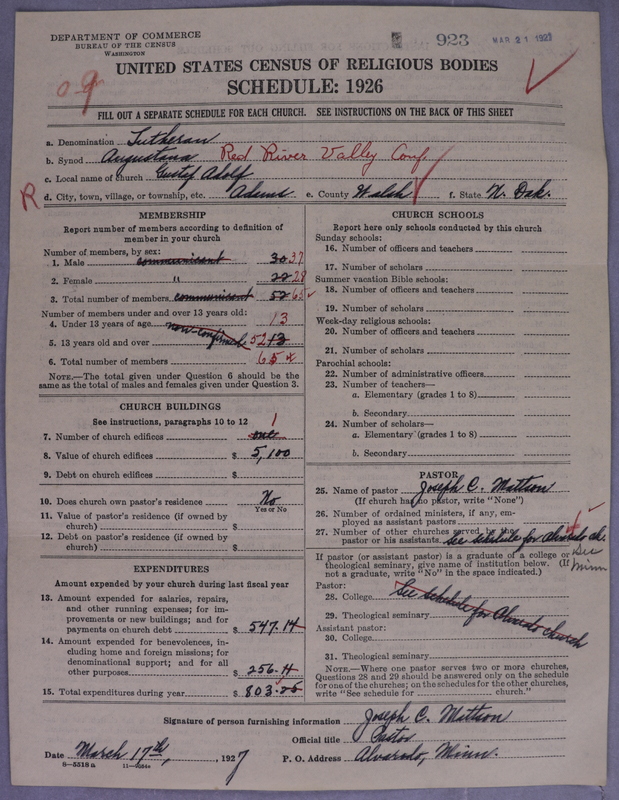 DEPARTMENT OF COMMERCE
BUREAU OF THE CENSUS
WASHINGTON
923
MAR 21 1927
UNITED STATES CENSUS OF RELIGIOUS BODIES
SCHEDULE: 1926
FILL OUT A SEPARATE SCHEDULE FOR EACH CHURCH. SEE INSTRUCTIONS ON THE BACK OF THIS SHEET
a. Denomination Lutheran
b. Synod Augustana Red River Valley Conf
c. Local name of church Gustaf Adolf
R d. City, town, village, or township, etc. Adams e. County Walsh f. State N. Dak.
MEMBERSHIP
Report number of members according to definition of
member in your church
Number of members, by sex:
1. Male communicant 30 37
2. Female " 22 28
3. Total number of members communicant 52 65
Number of members under and over 13 years old:
4. Under 13 years of age non-confirmed 13
5. 13 years old and over 52 13
6. Total number of members 65
NOTE.—The total given under Question 6 should be the
same as the total of males and females given under Question 3.
CHURCH BUILDINGS
See instructions, paragraphs 10 to 12
7. Number of church edifices one 1
8. Value of church edifices $ 5,100
9. Debt on church edifices $
10. Does church own pastor's residence No
Yes or No
11. Value of pastor's residence (if owned by
church) $
12. Debt on pastor's residence (if owned by
church) $
EXPENDITURES
Amount expended by your church during last fiscal year
13. Amount expended for salaries, repairs,
and other running expenses; for im-
provements or new buildings; and for
payments on church debt $ 547.14
14. Amount expended for benevolences, in-
cluding home and foreign missions; for
denominational support; and for all
other purposes $ 256.11
15. Total expenditures during year $ 803.25
CHURCH SCHOOLS
Report here only schools conducted by this church
Sunday schools:
16. Number of officers and teachers
17. Number of scholars
Summer vacation Bible schools:
18. Number of officers and teachers
19. Number of scholars
Week-day religious schools:
20. Number of officers and teachers
21. Number of scholars
Parochial schools:
22. Number of administrative officers
23. Number of teachers—
a. Elementary (grades 1 to 8)
b. Secondary
24. Number of scholars—
a. Elementary (grades 1 to 8)
b. Secondary
PASTOR
25. Name of pastor Joseph C. Mattson
(If church has no pastor, write "None")
26. Number of ordained ministers, if any, em-
ployed as assistant pastors
27. Number of other churches served by the
pastor or his assistants See schedule for Alvarado ch.
If pastor (or assistant pastor) is a graduate of a college or
theological seminary, give name of institution below. (If
not a graduate, write "No" in the space indicated.)
See
Minn
Pastor:
28. College
See schedule for Alvarado church
29. Theological seminary
Assistant pastor:
30. College
31. Theological seminary
NOTE.—Where one pastor serves two or more churches,
Questions 28 and 29 should be answered only on the schedule
for one of the churches; on the schedules for the other churches,
write "See schedule for church."
Signature of person furnishing information Joseph C. Mattson
Official title Pastor
Date March 17th, 1927 P. O. Address Alvarado, Minn.
8-5518 a